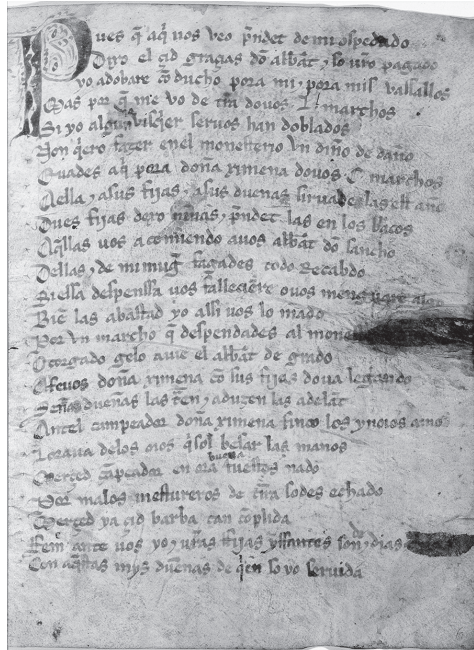 Pues q̃ aq̃ uos veo p̃ndet de mi ospedado
Dixo el çid graçias dõ abbat ⁊ so uro pagado
yo adobare cõducho pora mi ⁊ pora mis vassallos
Mas por q̃ me vo de tr̃a douos L marchos
Si yo algun visq̃er seruos han doblados
Non q̃ero fazer enel monesterio vn dinõ de daño
Euades aq̃ pora doña ximena douos C marchos
Aella ⁊ asus fijas ⁊ asus duenas siruades las est año
Dues fijas dexo niñas ⁊ p̃ndet las en los braços
Aq̃llas uos acomiendo auos abbat dõ sancho
Dellas ⁊ de mi mug̃ fagades todo Recabdo
Si essa despenssa uos falleçiere o uos menguare
Biẽ las abastad yo assi uos lo mãdo
Por vn marcho q̃ despendades al mone
Otorgado gelo auie el abbat de grado
Afeuos doña ximena cõ sus fijas do ua legando
Señas dueñas las trẽn ⁊ aduzen las adelãt
Antel campeador doña ximena finco los ynoios amos
Loraua delos oios q̃sol besar las manos
Merçed cãpeador en ora buena fuestes nado
Por malos mestureros de tr̃ra sodes echado
Merçed ya çid barba tan cõplida
Fem ante uos yo ⁊ uras fijas yffantes son ⁊ de dias
Con aq̃stas mys dueñas de q̃en so yo seruida